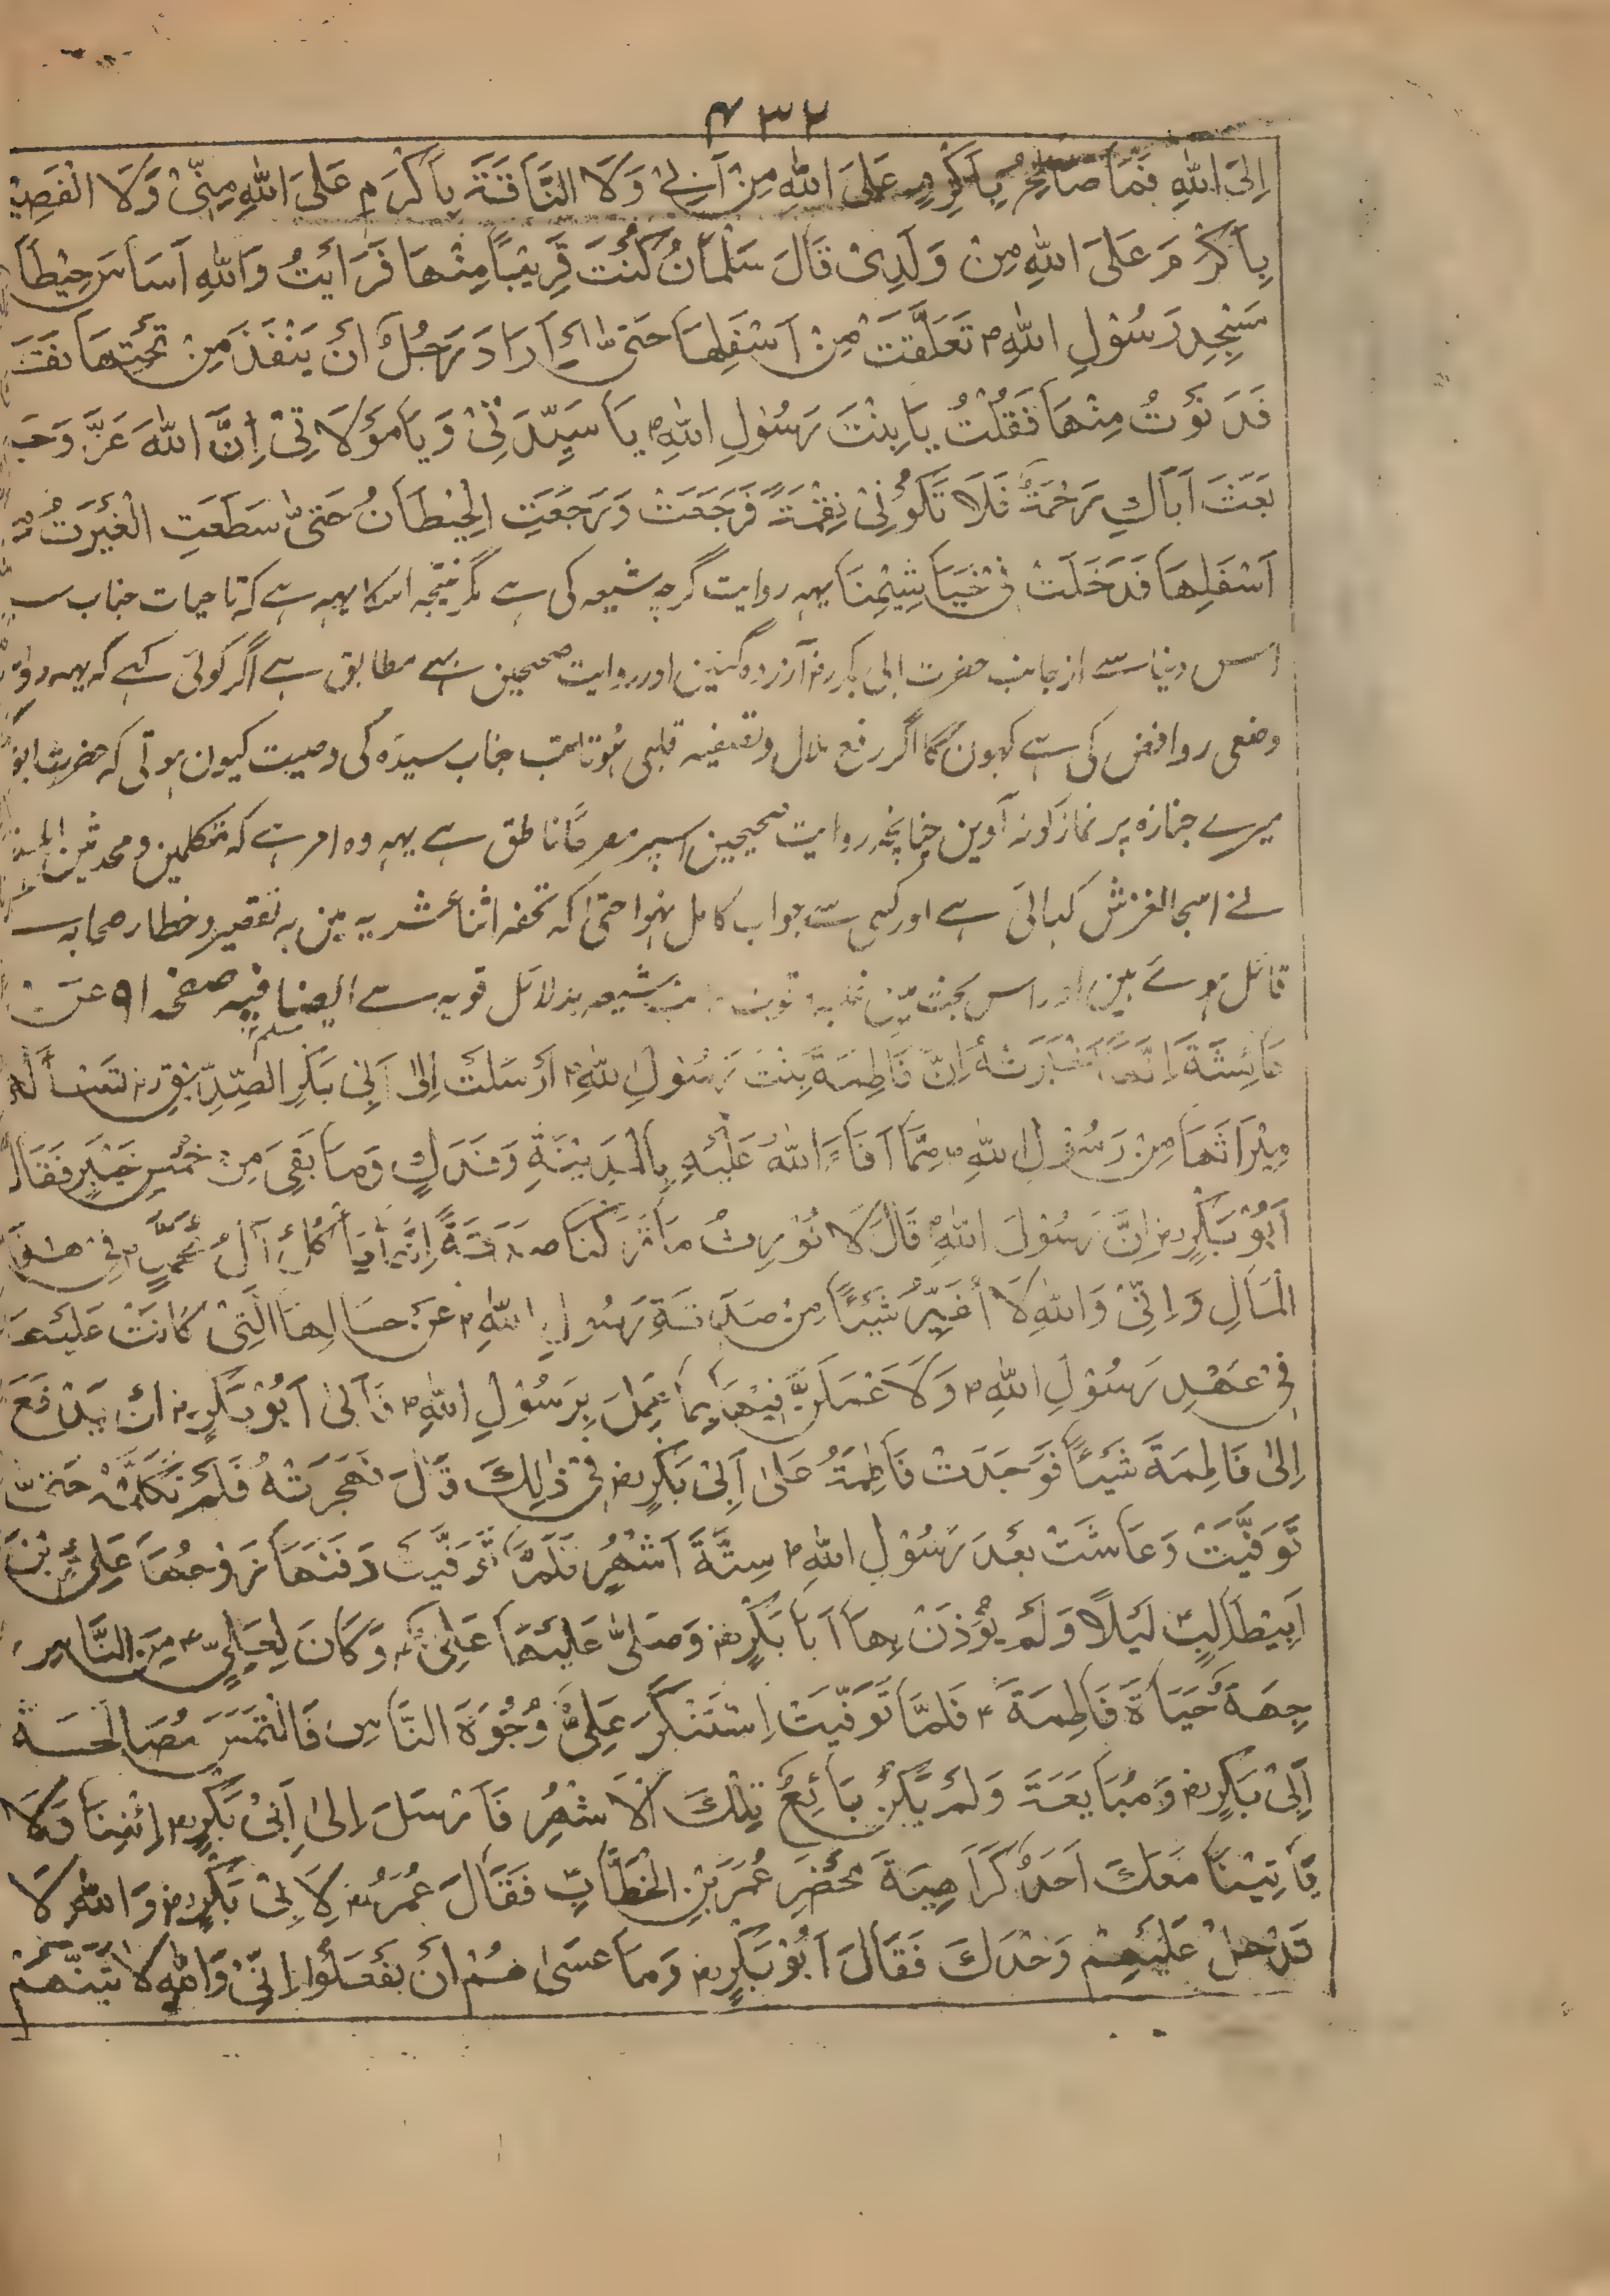 ۴۳۲
اِلَی اللّٰهِ فَمَا صَالِحٌ بِاَکْرَمِ عَلَی اللّٰهِ مِنْ اَبِیْ وَلَا النَّاقَةَ بِاَکْرَمِ عَلَی اللّٰهِ مِنِّیْ وَلَا الْفَصِیْ
بِاَکْرَمَ عَلَی اللّٰهِ مِنْ وَلَدِیْ قَالَ سَلْمَانُ کُنْتُ قَرِیْبًا مِنْهَا فَرَاَیْتُ وَاللّٰهِ اَسَاسَ حِیْطَا
مَسْجِدِ رَسُوْلِ اللّٰهِ ۴ تَعَلَّقَتْ مِنْ اَسْفَلِهَا حَتّٰی اَرَادَ رَجُلٌ اَنْ یَنْفَذَ مِنْ تَحْتِهَا نَفَذَ
فَدَنَوْتُ مِنْهَا فَقُلْتُ یَا بِنْتَ رَسُوْلِ اللّٰهِ ۴ یَا سَیِّدَتِیْ وَ یَا مَوْلَاتِیْ اِنَّ اللّٰهَ عَزَّ وَجَ
بَعَثَ اَبَاكِ رَحْمَةً فَلَا تَکُوْنِیْ نِقْمَةً فَرَجَعَتْ وَرَجَعَتِ الْحِیْطَانُ حَتّٰی سَطَعَتِ الْغَبَرَةُ مِ
اَسْفَلِهَا فَدَخَلَتْ فِیْ خَیَاشِیْمِنَا یہہ روایت گرچہ شیعہ کی ہے مگر نتیجہ اسکا یہہ ہے کہ تا حیات جناب سی
اس دنیا سے از جانب حضرت ابی بکر رض آزردہ گئین اور روایت صحیحین سے مطابق ہے اگر کوئی کہے کہ یہہ روا
وضعی روافض کی ہے کہون گا اگر رفع ملال و تصفیہ قلبی ہوتا تب جناب سیدہ کی وصیت کیون ہوتی کہ حضرت ابو
میرے جنازہ پر نماز کو نہ آوین چنانچہ روایت صحیحین اسپر مصرحًا ناطق ہے یہہ وہ امر ہے کہ متکلمین و محدثین
نے اسجا لغزش کہائی ہے اور کسی سے جواب کامل نہوا حتی کہ تحفہ اثنا عشریہ مین بہ تقصیر و خطاء صحابہ
قائل ہوئے ہین اور اس بحث مین شیعہ بدلائل قویہ سے ایضا فیہ صفحہ ۹۱ عَنْ
مسلم
عَائِشَةَ اِنَّهَا اَخْبَرَتْهُ اِنَّ فَاطِمَةَ بِنْتَ رَسُوْلِ اللّٰهِ ۴ اَرْسَلَتْ اِلٰی اَبِیْ بَکْرِ الصِّدِّیْقِ رض تَسْاَلُهُ
مِیْرَاثَهَا مِنْ رَسُوْلِ اللّٰهِ ۴ مِمَّا اَفَاءَ اللّٰهُ عَلَیْهِ بِالْمَدِیْنَةِ وَفَدَكٍ وَمَا بَقِیَ مِنْ خُمْسِ خَیْبَرِ فَقَالَ
اَبُوْ بَکْرٍ رض اِنَّ رَسُوْلَ اللّٰهِ ۴ قَالَ لَا نُوْرِثُ مَا تَرَکْنَا صَدَقَةً اِنَّمَا یَاْکُلُ آلُ مُحَمَّدٍ ۴ فِیْ هٰذَا
الْمَالِ وَ اِنِّیْ وَاللّٰهِ لَا اُغَیِّرُ شَیْئًا مِنْ صَدَقَةِ رَسُوْلِ اللّٰهِ ۴ عَنْ حَالِهَا الَّتِیْ کَانَتْ عَلَیْهَا
فِیْ عَهْدِ رَسُوْلِ اللّٰهِ ۴ وَلَاَعْمَلَنَّ فِیْهَا بِمَا عَمِلَ بِرَسُوْلِ اللّٰهِ ۴ فَاَبٰی اَبُوْبَکْرٍ رض اَنْ یَدْفَعَ
اِلٰی فَاطِمَةَ شَیْئًا فَوَجَدَتْ فَاطِمَةُ عَلٰی اَبِیْ بَکْرٍ رض فِیْ ذٰلِكَ قَالَ فَهَجَرَتْهُ فَلَمْ تَکَلَّمْهُ حَتّٰی
تَوَفَّیَتْ وَعَاشَتْ بَعْدَ رَسُوْلِ اللّٰهِ ۴ سِتَّةَ اَشْهُرٍ فَلَمَّا تُوَفِّیَتْ دَفَنَهَا زَوْجُهَا عَلِیُّ بْنُ
اَبِیْطَالِبٍ لَیْلًا وَلَمْ یُؤْذَنْ بِهَا اَبَا بَکْرٍ رض وَصَلّٰی عَلَیْهَا عَلِیٌّ ۴ وَکَانَ لِعَلِیٍّ ۴ مِنَ النَّاسِ
جِهَةٌ حَیَاةَ فَاطِمَةَ ۴ فَلَمَّا تَوَفِّیَتْ اِسْتَنْکَرَ عَلِیٌّ وُجُوْهَ النَّاسِ فَالْتَمَسَ مُصَالَحَةَ
اَبِیْ بَکْرٍ رض وَمُبَایَعَةَ وَلَمْ یَکُنْ بَائِعُ تِلْكَ الْاَشْهُرِ فَاَرْسَلَ اِلٰی اَبِیْ بَکْرٍ رض اِئْتِنَا وَلَا
یَاْتِیْنَا مَعَكَ اَحَدٌ کَرَاهِیَةَ مَحْضَرِ عُمَرَ بْنِ الْخَطَّابِ فَقَالَ عُمَرُ رض لِاَبِیْ بَکْرٍ رض وَاللّٰهِ لَا
تَدْخُلْ عَلَیْهِمْ وَحْدَكَ فَقَالَ اَبُوْ بَکْرٍ رض وَمَا عَسٰی هُمْ اَنْ یَفْعَلُوْا اِنِّیْ وَاللّٰهِ لَاٰتِیَنَّهُمْ